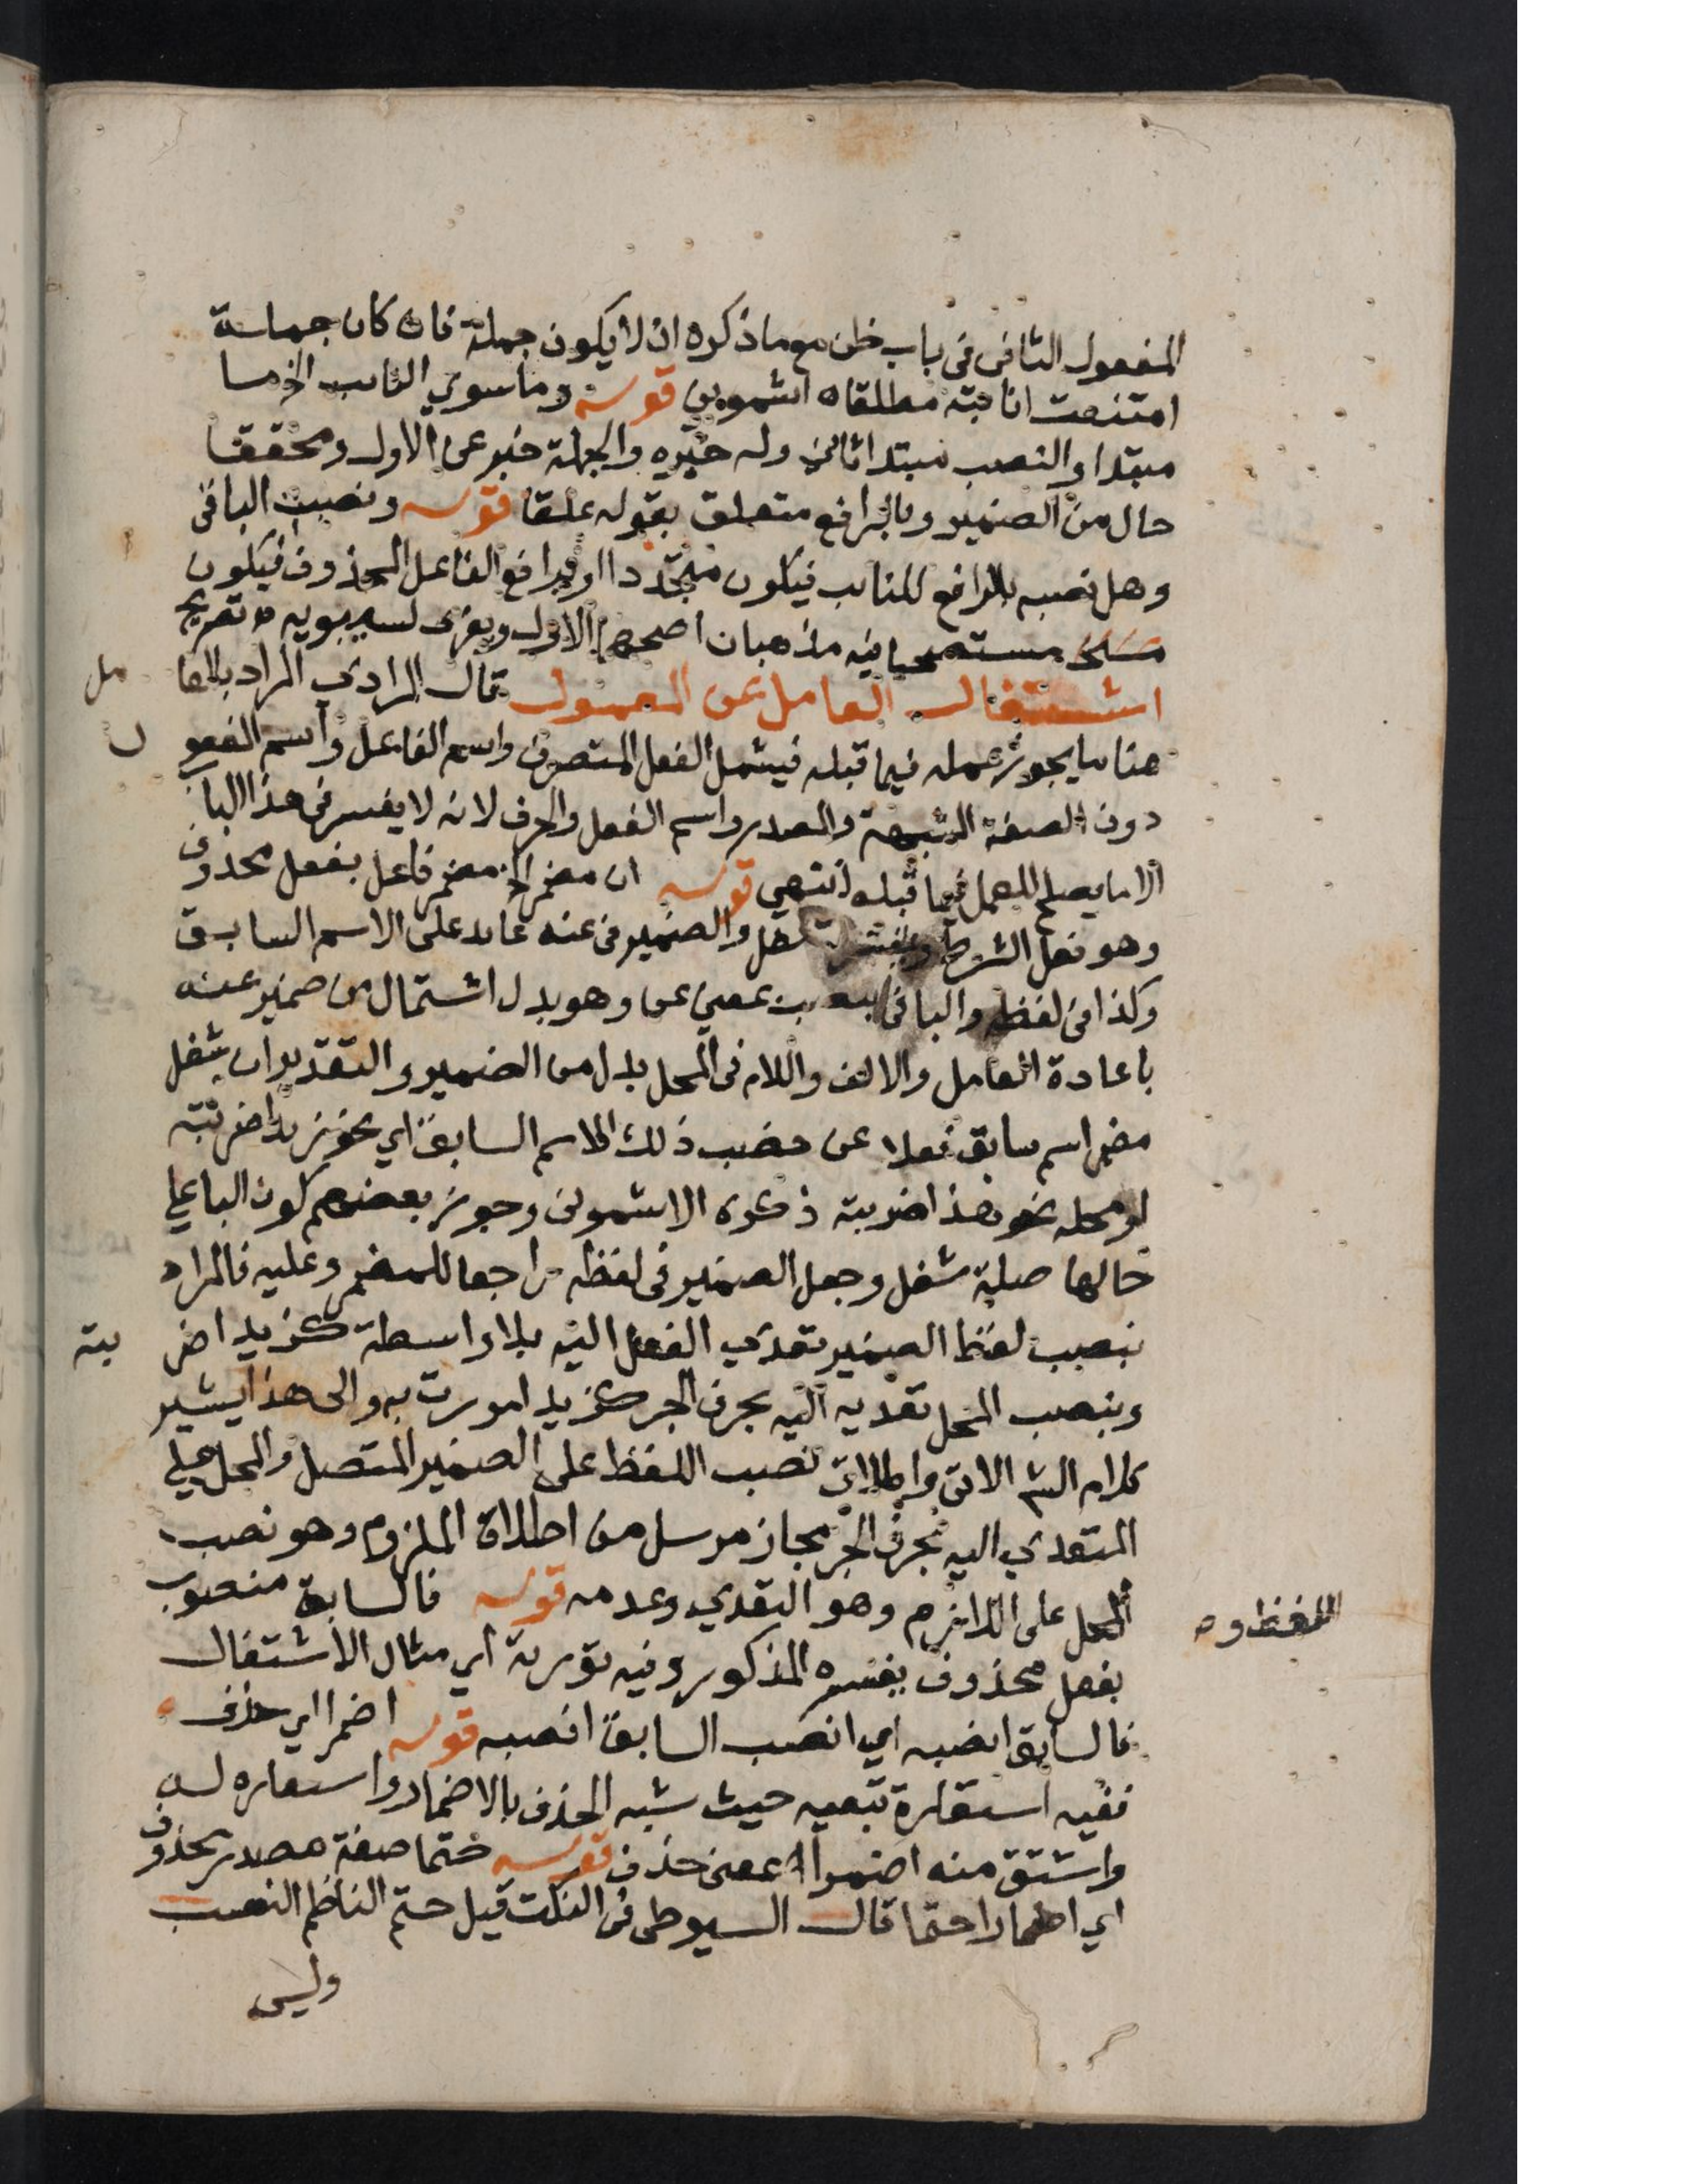 المفعول الثانى فى باب ظن مع ما ذكره ان لا يكون جملة فان كان جملة
امتنعت انابته مطلقا ه اشمونى قوله وما سوى النائب الخ ما
مبتدا والنصب مبتدا ثانى وله خبره والجملة خبر عن الاول ومحققا
حال من الضمير وبالرافع متعلق بقوله علقا قوله ونصب الباقى
وهل نصبه بالرافع للنائب فيكون متجددا او برافع الفاعل المحذوف فيكون
مستصحبا فيه مذهبان اصحهما الاول ويعزى لسيبويه ه تصريح
اشتغال العامل عن المعمول قال المرادي المراد بالعا مل
هنا ما يجوز عمله فيما قبله فيشمل الفعل المتصرف واسم الفاعل واسم المفعو ل
دون الصفة المشبهة والمصدر واسم الفعل والحرف لانه لا يفسر فى هذا الباب
الا ما يصلح للعمل فيما قبله انتهي قوله ان مضمر الخ مضمر فاعل بفعل محذوف
وهو فعل الشرط شغل والضمير فى عنه عائد على الاسم السابق
وكذا فى لفظه والباقى بمعنى عن وهو بدل اشتمال من ضمير عنه
باعادة العامل والالف واللام فى المحل بدل من الضمير والتقدير ان شغل
مضمر اسم سابق فعلا عن نصب ذلك الاسم السابق اي نحو زيدا ضربته
او محله نحو هذا ضربته ذكره الاشمونى وجوز بعضهم كون الباء على
حالها صلة شغل وجعل الضمير فى لفظه راجعا للمضمر وعليه فالمراد
بنصب لفظ الضمير تعدي الفعل اليه بلا واسطة كزيدا ضر بته
وبنصب المحل تعديه اليه بحرف الجر كزيدا مررت به والى هذا يشير
كلام الش الاتى واطلاق نصب اللفظ على الضمير المتصل والمحل على
المتعدي اليه بحرف الجر مجاز مرسل من اطلاق الملزوم وهو نصب
اللفظ و ه المحل على اللازم وهو التعدي وعدمه قوله فالسابق منصوب
بفعل محذوف يفسره المذكور وفيه تورية اي مثال الاشتغال
فالسابق انصبه اي انصب السابق انصبه قوله اضمرا اي حذف
ففيه استعارة تبعيه حيث شبه الحذف بالاضمار واستعاره له
واشتق منه اضمرا بمعنى حذف قوله حتما صفة مصدر محذوف
اي اضمارا حتما قال السيوطى فى النكت قيل حتم الناظم النصب
وليس